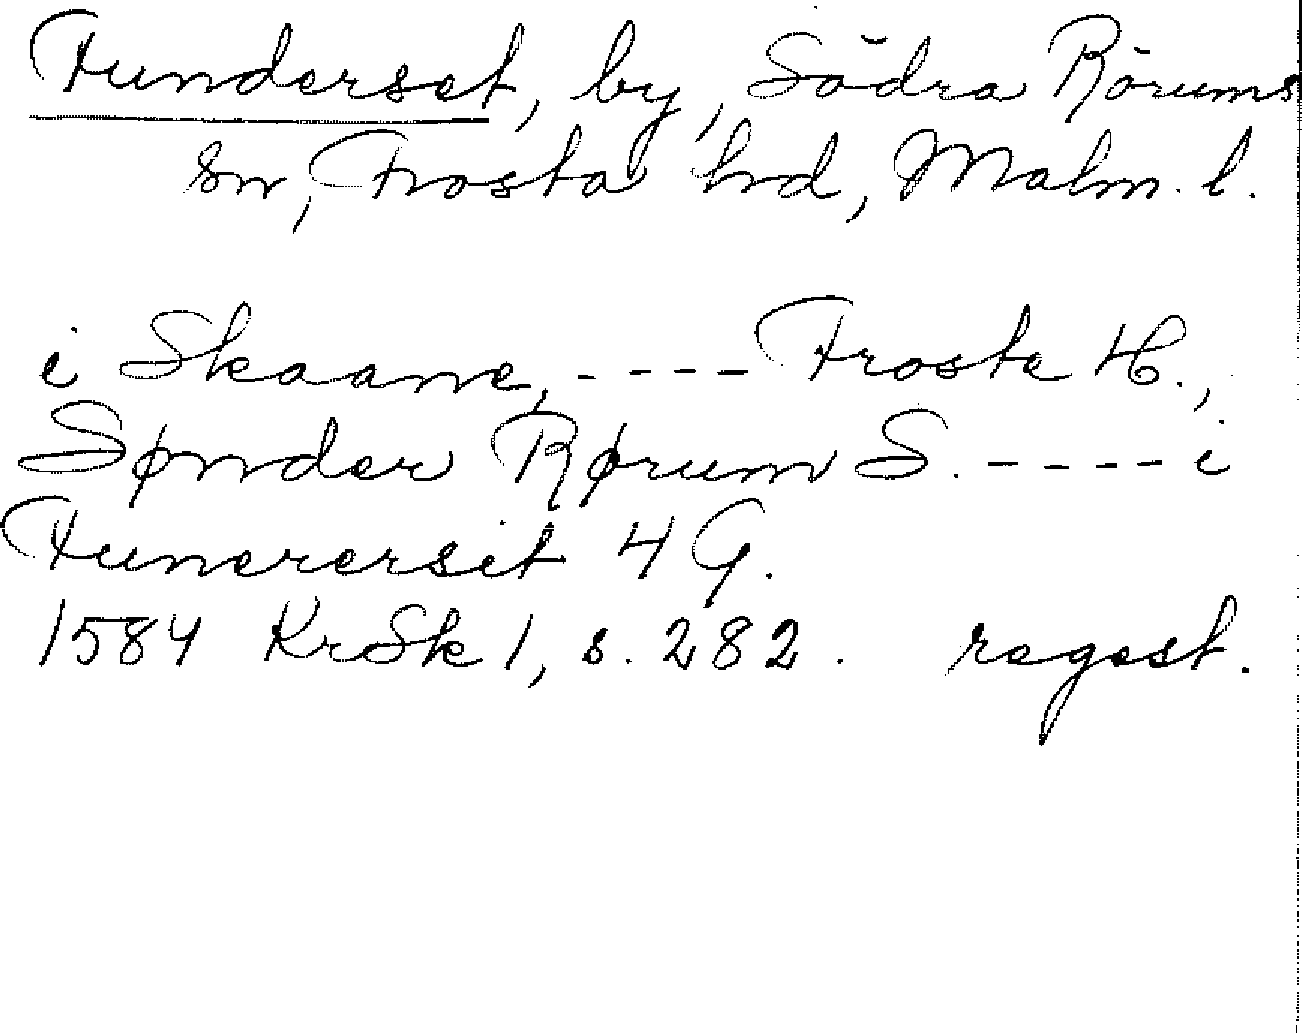 Funderset, by, Södra Rörums
sn, Frosta hrd, Malm. l.
i Skaane, ---- Froste H.,
Sønder Rørum S. ---- i
Funerersit 4 G.
1584 KrSk 1, s. 282. regest.